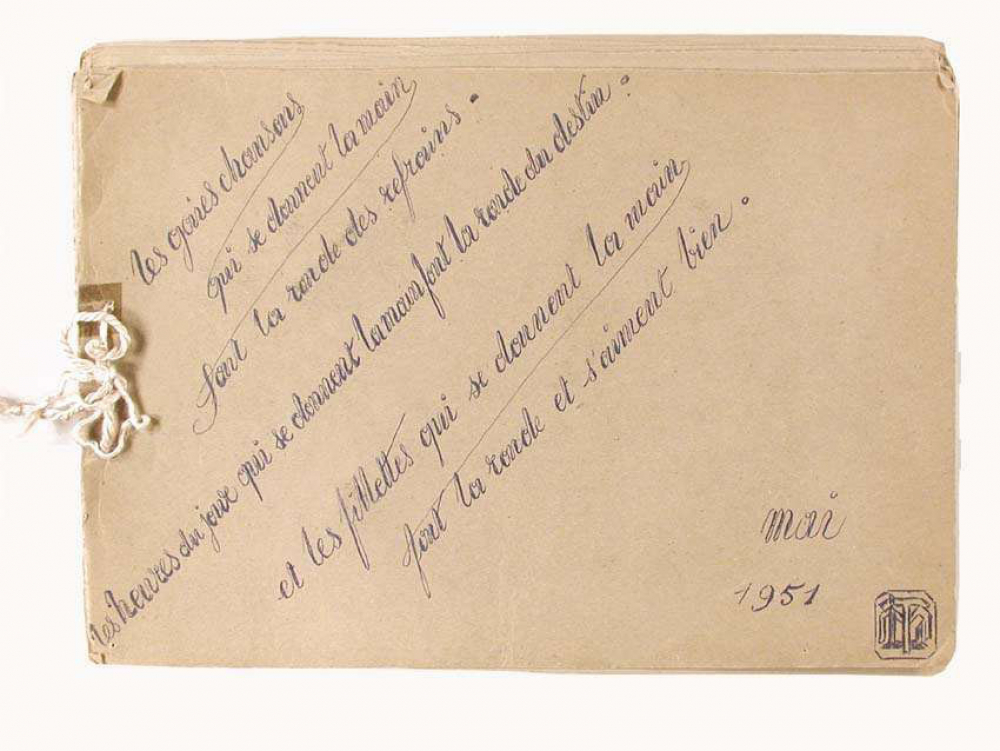 les gaies chansons
qui se donnent la main
font la ronde des refrains.
les heures du jour qui se donnent la main font la ronde du destin.
et les fillettes qui se donnent la main
font la ronde et s'aiment bien.
mai
1951